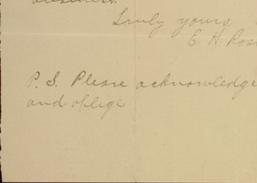 Truly yours,
E. H.
P. S. Please acknowledge
and oblige